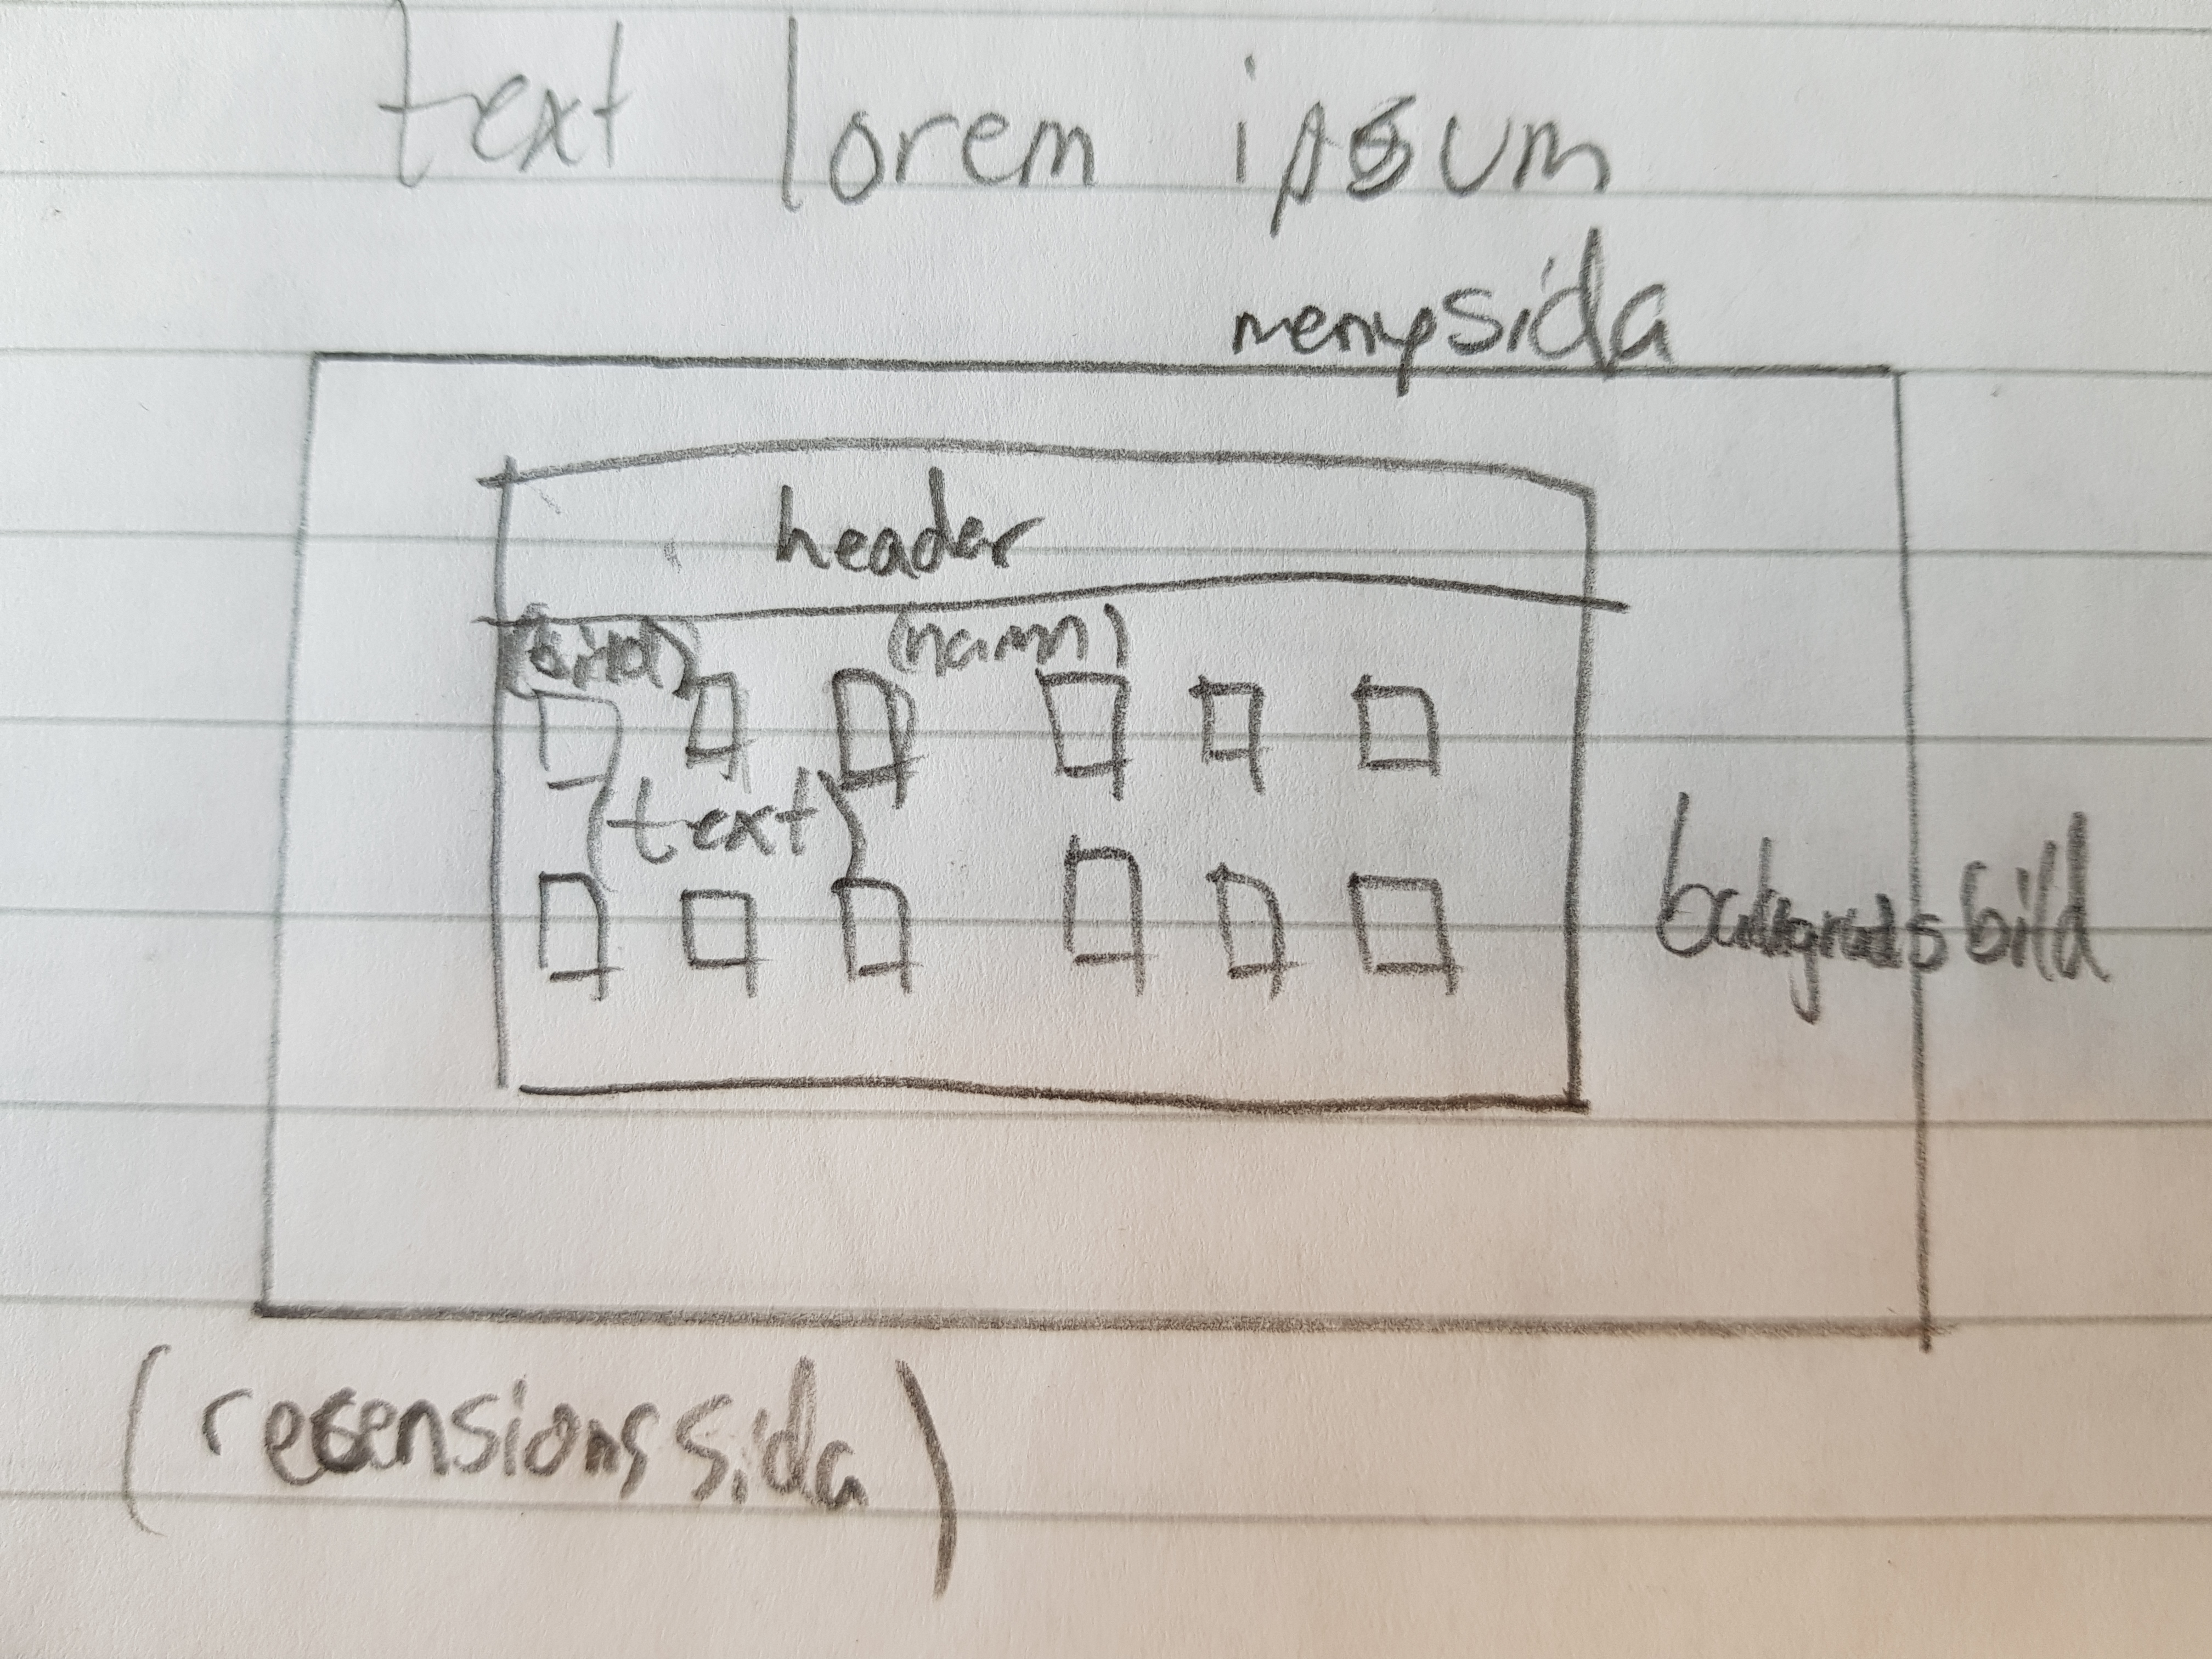 text lorem ipsum
menysida
header
(namn)
text
bakgrundsbild
(recensionssida)